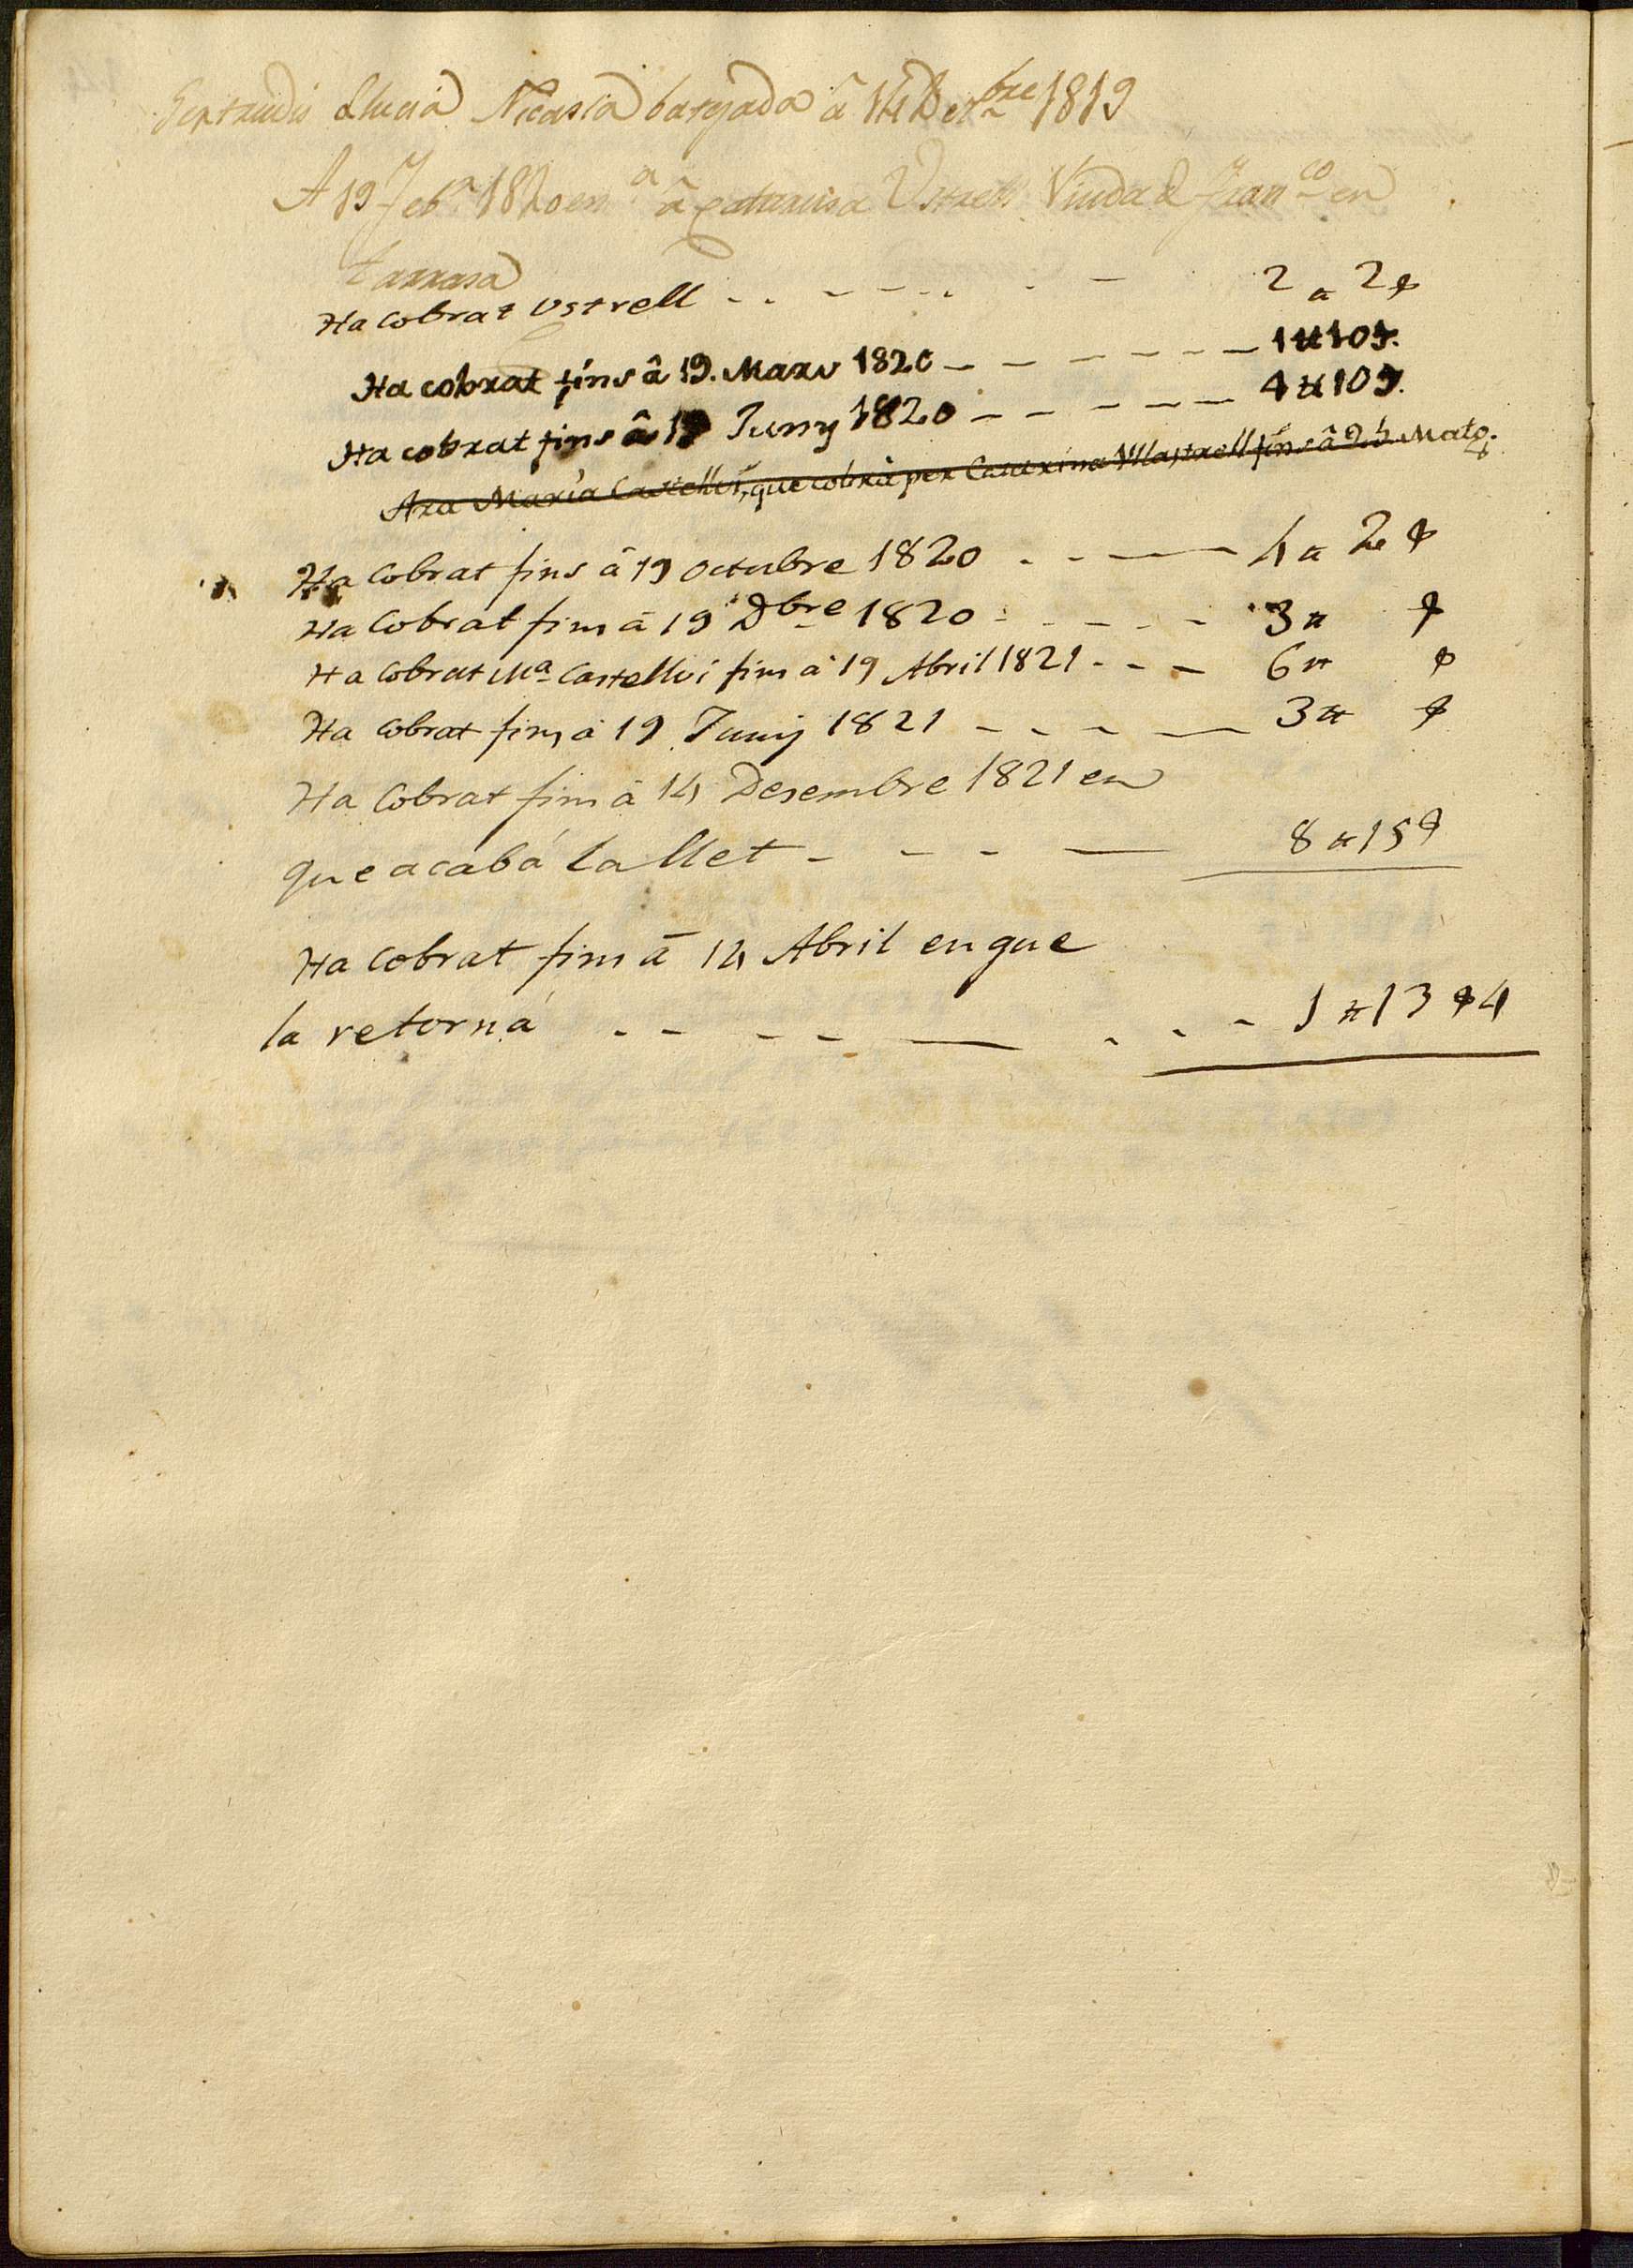 Gertrudis Llucia Nicasia batejada â 14 Desbre 1819
A 19 Febr 1820 en a â Catarina Ustrell Viuda de Franco en
tarrasa
Ha Cobrat Ustrell 2 ll 2 s
Ha cobrat fins â 19. Mars 1820 1 ll 10 s.
Ha cobrat fins â 19 Juny 1820 4 ll 10 s.
Ara Maria Castellvi, que cobrà per Caterina fins â 24 Maig.
Ha Cobrat fins â 19 octubre 1820 4 ll 2 s
Ha Cobrat fins â 19 Dbre 1820 3 ll s
Ha Cobrat Ma Castellvi fins â 19 Abril 1821 6 ll s
Ha Cobrat fins â 19 Juny 1821 3 ll s
Ha Cobrat fins â 14 Desembre 1821 en
que acabá la llet 8 ll 15 s
Ha Cobrat fins â 14 Abril en que
la retorná 1 ll 13 s 4